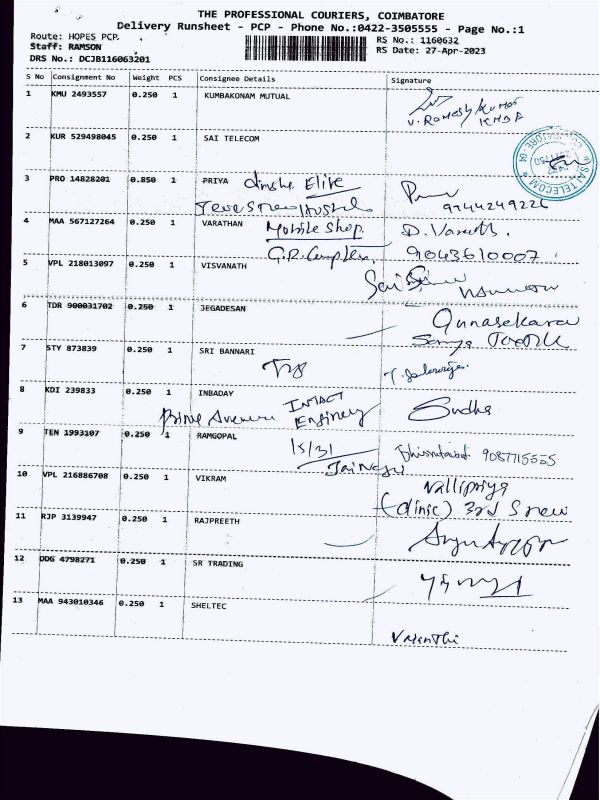 THE PROFESSIONAL COURIERS, COIMBATORE
Delivery Runsheet - PCP - Phone No.:0422-3505555 - Page No.:1
Route: HOPES PCP.
Staff: RAMSON
DRS No.: DCJB116063201
RS No.: 1160632
RS Date: 27-Apr-2023
S No Consignment No Weight PCS Consignee Details Signature
1 KMU 2493557 0.250 1 KUMBAKONAM MUTUAL
V. Romesh Kumar
KMBA
2 KUR 529498045 0.250 1 SAI TELECOM
SAI TELECOM
3 PRO 14828201 0.850 1 PRIYA Elite
9944249226
4 MAA 567127264 0.250 1 VARATHAN Mobile Shop. D. Varath.
G.R. Complex. 9043610007
5 VPL 218013097 0.250 1 VISVANATH
6 TDR 900031702 0.250 1 JEGADESAN
Gunasekaran
7 STY 873839 0.250 1 SRI BANNARI
8 KDI 239833 0.250 1 INBADAY
Prime Avenue INTACT Enginery Sudha
9 TEN 1993107 0.250 1 RAMGOPAL
15/31 9087715555
Jai Nagar
10 VPL 216886708 0.250 1 VIKRAM
Vallipriya
(clinic) 3rd
11 RJP 3139947 0.250 1 RAJPREETH
12 DDG 4798271 0.250 1 SR TRADING
13 MAA 943010346 0.250 1 SHELTEC
Vasanthi